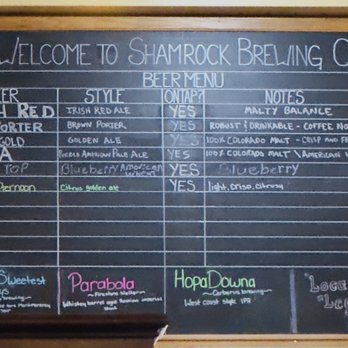 WELCOME TO SHAMROCK BREWING C
BEER MENU
ER STYLE ONTAP? NOTES
H RED IRISH RED ALE YES MALTY BALANCE
PORTER BROWN PORTER YES ROBUST & DRINKABLE - COFFEE NO
GOLD GOLDEN ALE YES 100% COLORADO MALT - CRISP AND F
A PUEBLO AMERICAN PALE ALE YES 100% COLORADO MALT \ AMERICAN
TOP Blueberry American Wheat YES Blueberry
ernoon Citrus golden ale YES light, crisp, citrusy
Sweetest Parabola HopaDowna "Loca
~ Firestone Walker ~ ~ Cerberus brewing ~
Whiskey barrel age Russian imperial stout West coast style IPA